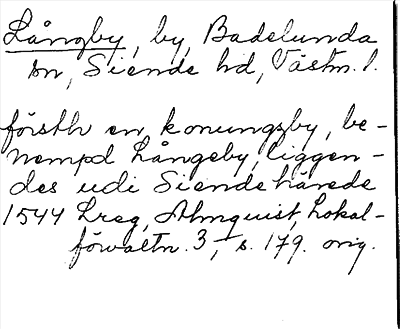 Långby, by, Badelunda
sn, Siende hd, Västm. l.
försth en konungzby, be-
nempd Långeby, liggen-
des udi Siende härede
1544 Lreg, Almquist, Lokal-
förvaltn. 3, s. 179. orig.